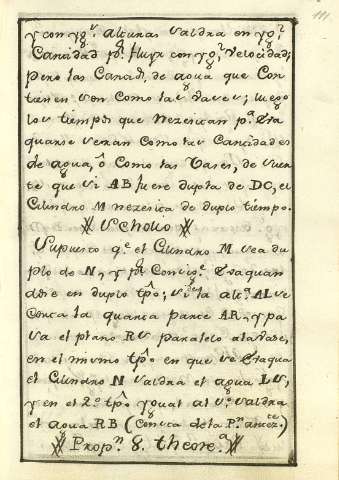 111
y con yg.s alturas saldra en yg.l
Cantidad pr. fluyr con yg.l velocidad;
pero las Cantid.s de agua que Con
tienen son como las vases; luego
los tiempos que nezesitan p.a Desa
guarse seran como las Cantidades
de agua, ô Como las Vases, de suer
te que si AB fuere dupla de DC, el
Cilindro M nezesita de duplo tiempo.
Scholio
Supuesto q.e el Cilindro M sea du
plo de N, y pr Consig.e Desaguan
dose en duplo tpô; si de la alt.a AL se
Corta la quarta parte AR, y pa
sa el plano RS paralelo ala vase,
en el mismo tpô en que se Desagua
el Cilindro N saldra el agua LS,
y en el 2.o tpô ygual al 1.o saldra
el agua RB (Consta de la P.n antez.te)
Prop.n 8. theore.a